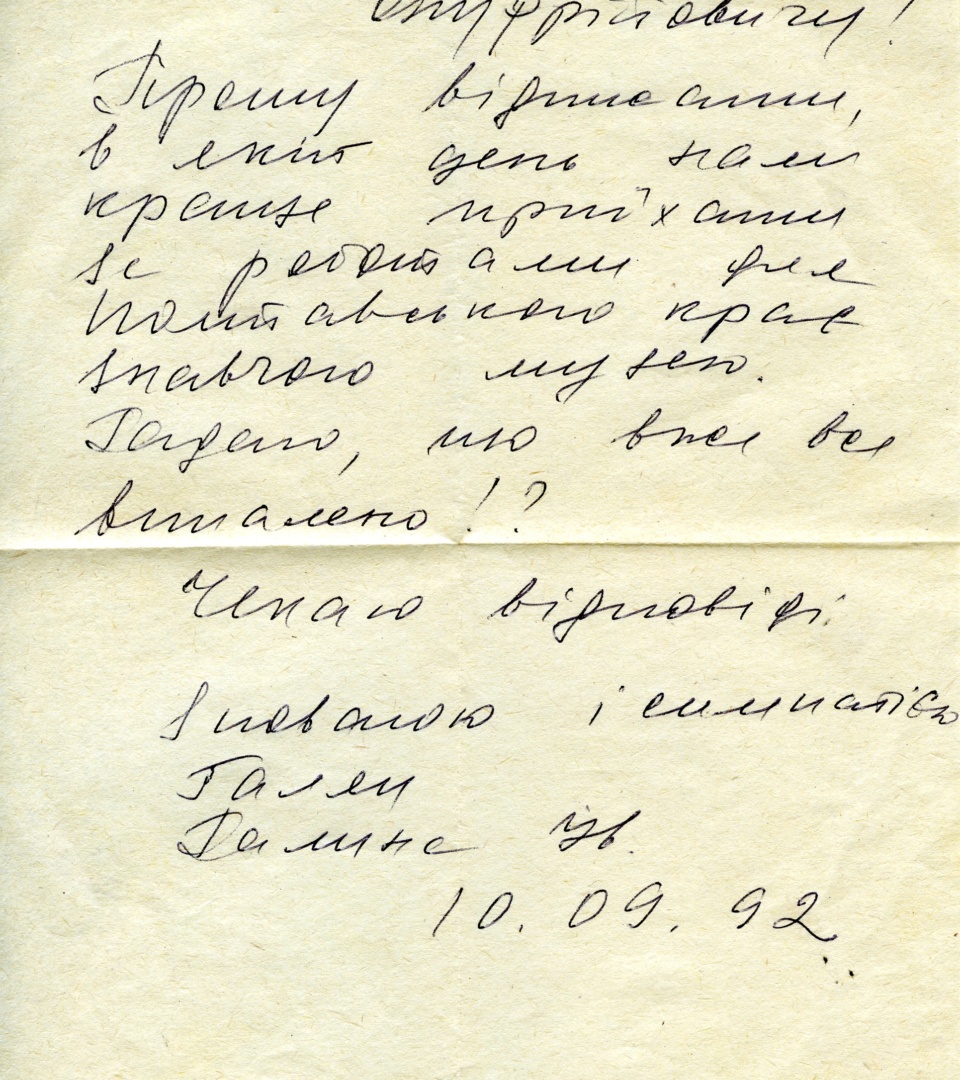 Онуфрійовичу!
Прошу відписати,
в який день нам
краще приїхати
за роботами для
Полтавського крає
знавчого музею.
Гадаю, що вже все
випалено!?
Чекаю відповіді.
З повагою і симпатією
Галя
Галина Ів.
10.09.92